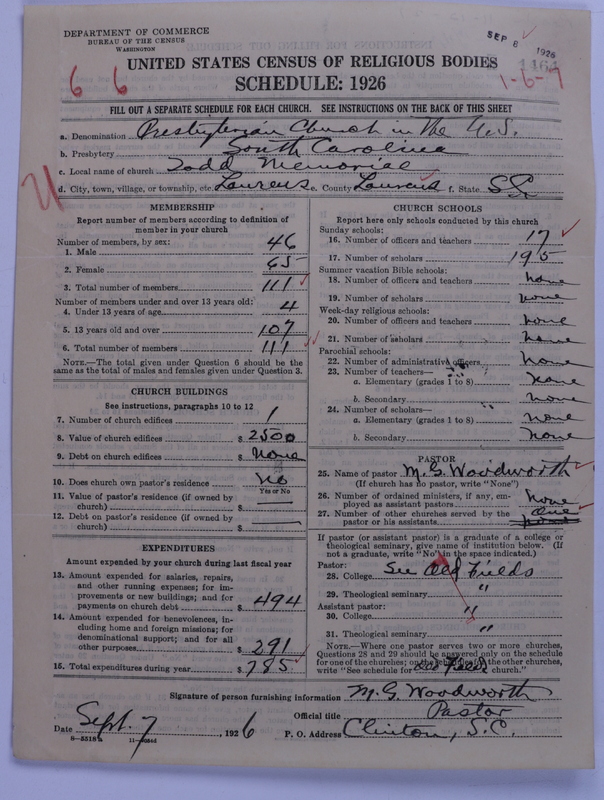 DEPARTMENT OF COMMERCE
BUREAU OF THE CENSUS
WASHINGTON
SEP 8 1926
6 6
1-6-7
UNITED STATES CENSUS OF RELIGIOUS BODIES
SCHEDULE: 1926
FILL OUT A SEPARATE SCHEDULE FOR EACH CHURCH. SEE INSTRUCTIONS ON THE BACK OF THIS SHEET
a. Denomination Presbyterian Church in the U.S.
b. Presbytery South Carolina
c. Local name of church Todd Memorial
d. City, town, village, or township, etc. Laurens e. County Laurens f. State S.C.
MEMBERSHIP
Report number of members according to definition of
member in your church
Number of members, by sex:
1. Male 46
2. Female 65
3. Total number of members 111
Number of members under and over 13 years old:
4. Under 13 years of age 4
5. 13 years old and over 107
6. Total number of members 111
NOTE.—The total given under Question 6 should be the
same as the total of males and females given under Question 3.
CHURCH BUILDINGS
See instructions, paragraphs 10 to 12
7. Number of church edifices 1
8. Value of church edifices $ 2500
9. Debt on church edifices $ None
10. Does church own pastor's residence No
Yes or No
11. Value of pastor's residence (if owned by
church) $
12. Debt on pastor's residence (if owned by
church) $
EXPENDITURES
Amount expended by your church during last fiscal year
13. Amount expended for salaries, repairs,
and other running expenses; for im-
provements or new buildings; and for
payments on church debt $ 494
14. Amount expended for benevolences, in-
cluding home and foreign missions; for
denominational support; and for all
other purposes $ 291
15. Total expenditures during year $ 785
CHURCH SCHOOLS
Report here only schools conducted by this church
Sunday schools:
16. Number of officers and teachers 17
17. Number of scholars 195
Summer vacation Bible schools:
18. Number of officers and teachers none
19. Number of scholars none
Week-day religious schools:
20. Number of officers and teachers none
21. Number of scholars none
Parochial schools:
22. Number of administrative officers none
23. Number of teachers—
a. Elementary (grades 1 to 8) none
b. Secondary none
24. Number of scholars—
a. Elementary (grades 1 to 8) none
b. Secondary none
PASTOR
25. Name of pastor M. G. Woodworth
(If church has no pastor, write "None")
26. Number of ordained ministers, if any, em-
ployed as assistant pastors none
27. Number of other churches served by the
pastor or his assistants one
If pastor (or assistant pastor) is a graduate of a college or
theological seminary, give name of institution below. (If
not a graduate, write "No" in the space indicated.)
Pastor:
28. College See Old Fields
29. Theological seminary "
Assistant pastor:
30. College "
31. Theological seminary "
NOTE.—Where one pastor serves two or more churches,
Questions 28 and 29 should be answered only on the schedule
for one of the churches; on the schedules for the other churches,
write "See schedule for Old Fields church."
Signature of person furnishing information M. G. Woodworth
Official title Pastor
Date Sept. 7, 1926 P. O. Address Clinton, S.C.
8-5518a